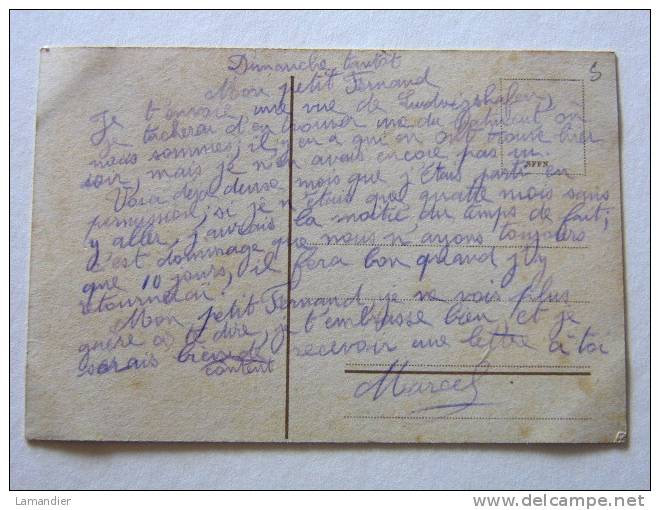 Dimanche tantôt
Mon petit Fernand
Je t'envoie une vue de Ludwigshafen,
je tacherai d'en trouver une du bâtiment où
nous sommes, il y en a qui en ont trouvé hier
soir, mais je n'en avais encore pas vu
Voila deja deux mois que j'étais parti en
permission, si je n'étais que quatre mois sans
y aller, j'aurais la moitié du temps de fait;
c'est dommage que nous n'ayons toujours
que 10 jours, il fera bon quand j'y
retournerai.
Mon petit Fernand, je ne vois plus
guère à te dire, je t'embrasse bien et je
serais bien recevoir une lettre à toi
content
Marcel
S